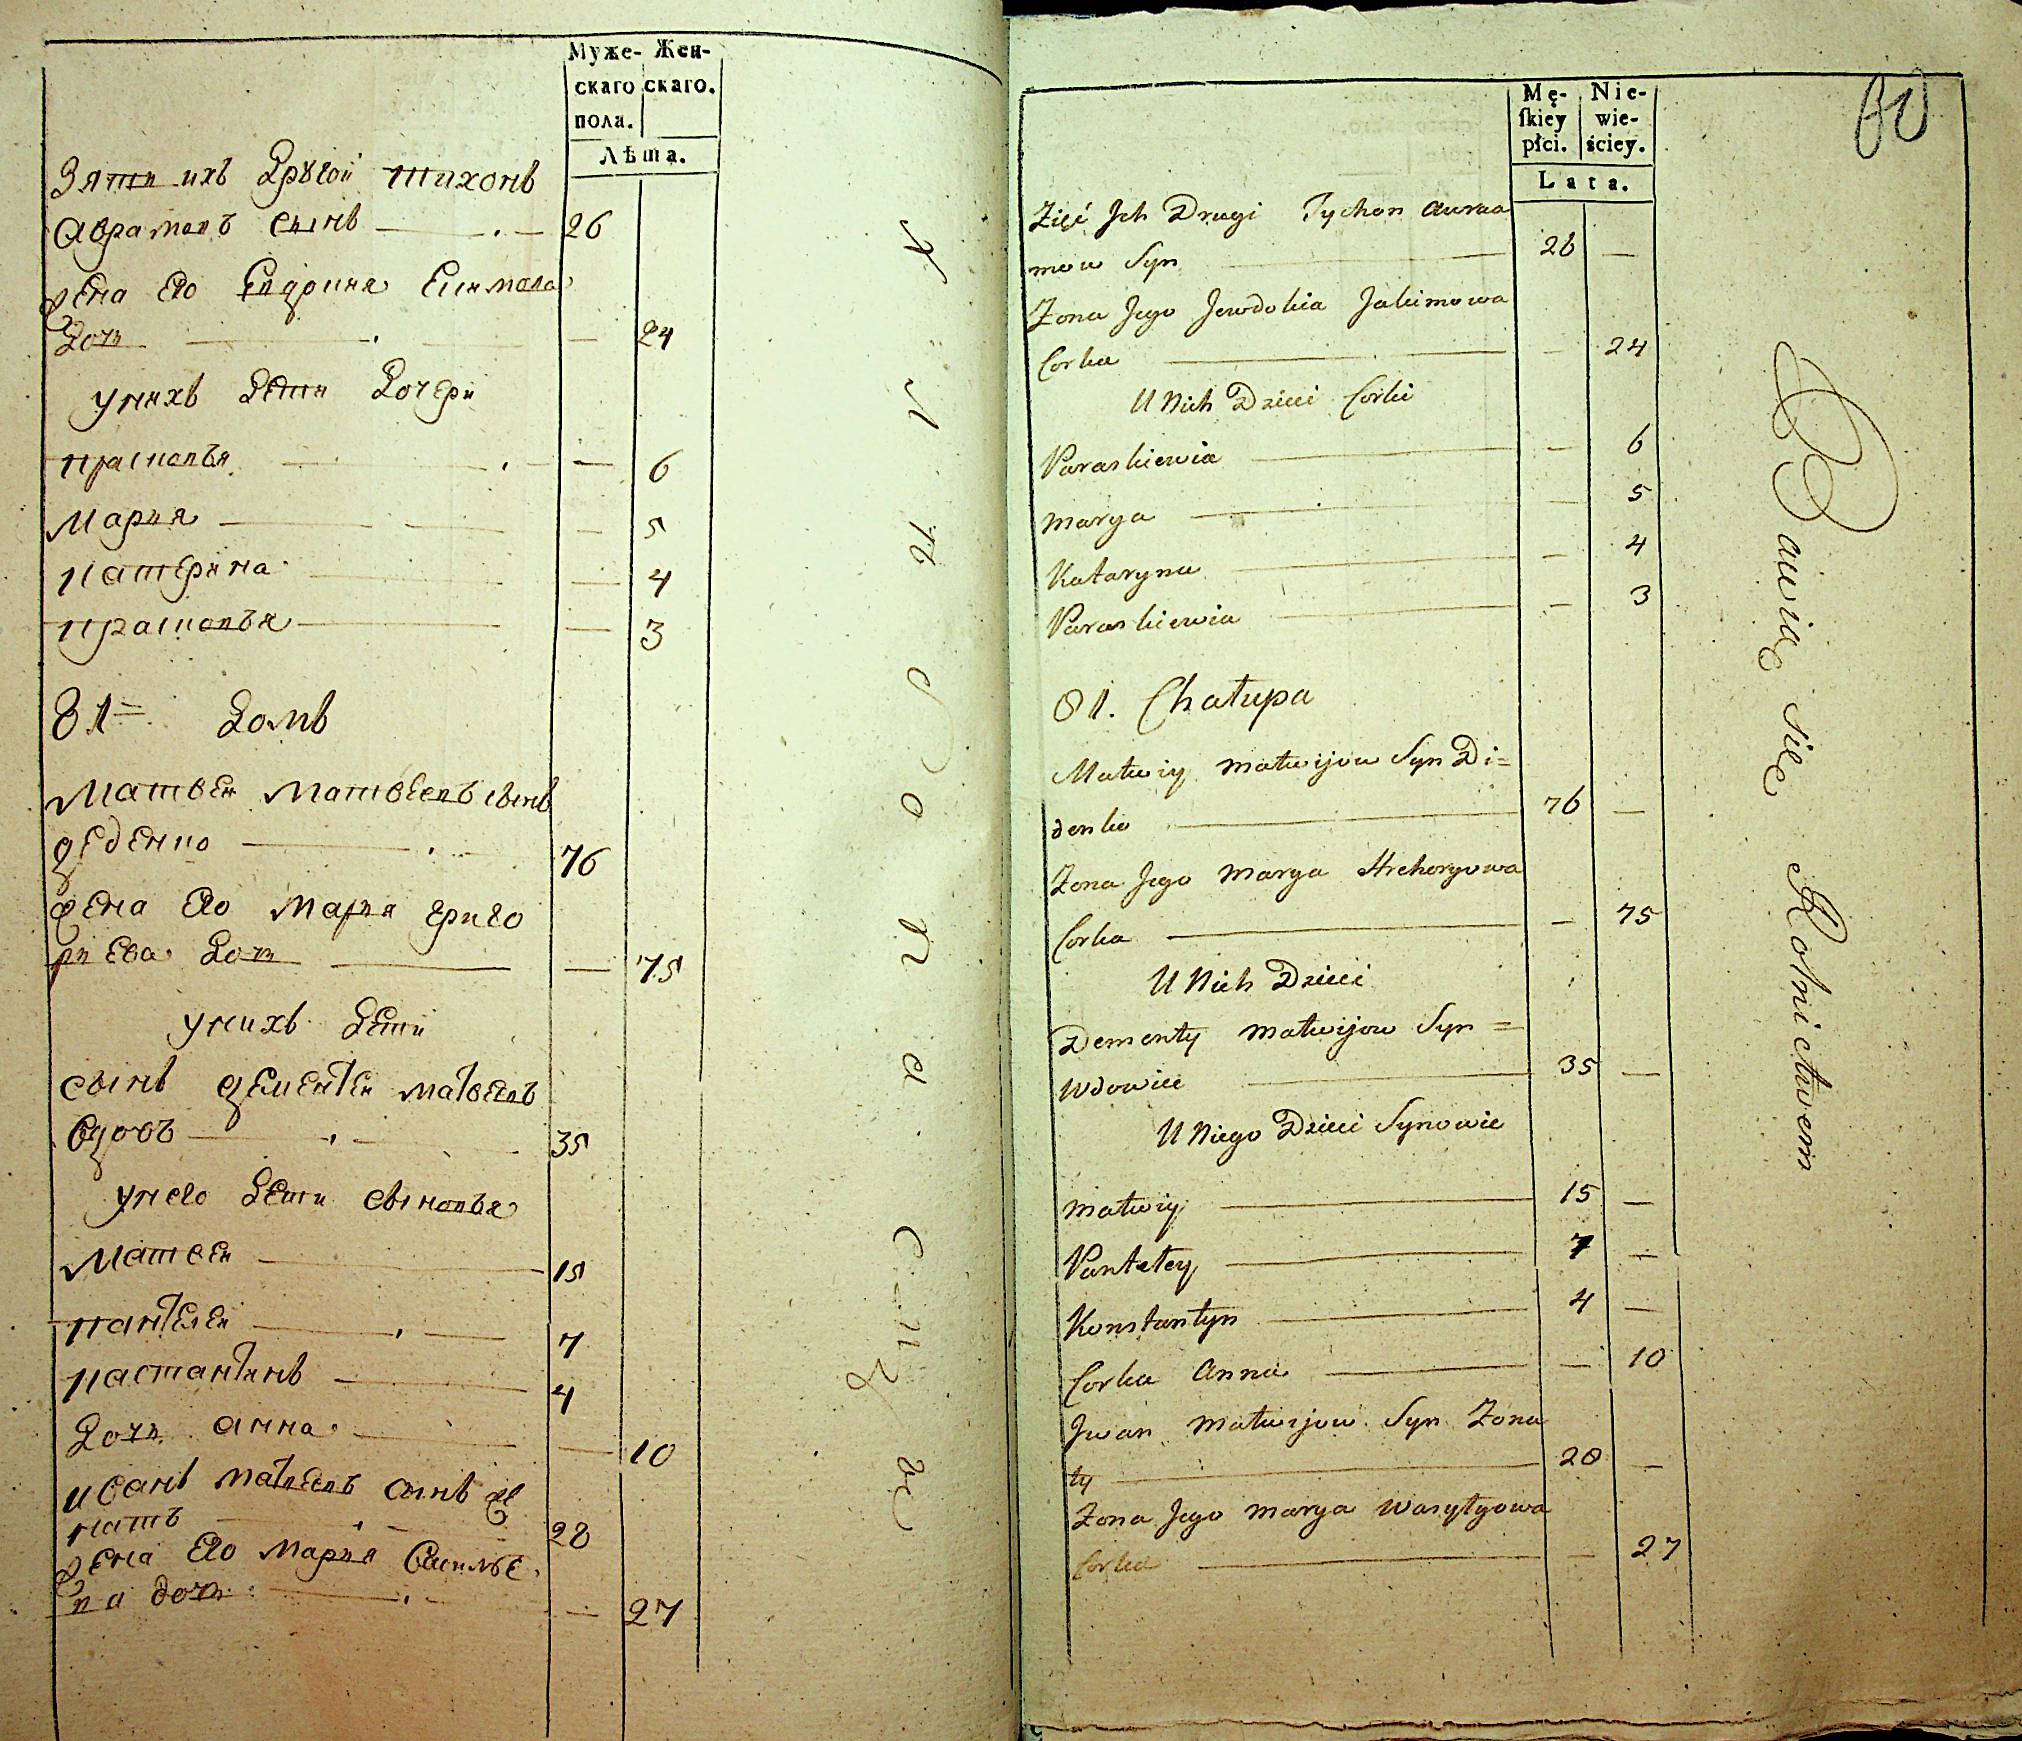 Муже- Жен-
скаго скаго.
пола.
Лѣта.
Зяти ихъ Другой тихонъ
Аврамовъ Сынъ — 26
жена Его Евдокия Екимова
Дочь — — 24
У нихъ Дети Дочери
Прасковья — — 6
Мария — — 5
Катерина — — 4
Прасковья — — 3
81= Домъ
Матвеи Матвеевъ сынъ
деденко — 76
жена Его Мария Григо
риева Дочь — — 75
У нихъ Дети
Сынъ дементеи матвеевъ
вдовъ — 35
У него Дети Сыновья
Матвеи — 15
Пантелеи — 7
Кастантинъ — 4
Дочь Анна — — 10
Иванъ Матвеевъ Сынъ же
натъ — 28
жена Его Мария Василье
ва дочь — — 27
Mę- Nie-
ſkiey wie-
płci. ściey.
Lata.
Zięć Jch Drugi Tychon Awraa
mow Syn — 26 —
Zona Jego Jewdokia Jakimowa
Corka — — 24
U Nich Dzieci Corki
Paraskiewia — — 6
Marya — — 5
Kataryna — — 4
Paraskiewia — — 3
81. Chałupa
Matwiy Matwijow Syn Di=
denko — 76 —
Zona Jego Marya Hrehoryowa
Corka — — 75
U Nich Dzieci
Dementy Matwijow Syn =
Wdowiec — 35 —
U Niego Dzieci Synowie
Matwiy — 15 —
Pantełey — 7 —
Konstantyn — 4 —
Corka Anna — — 10
Jwan Matwijow Syn Zona
ty — 28 —
Zona Jego Marya Wasyłyowa
Corka — — 27
Bawią się Rolnictwem